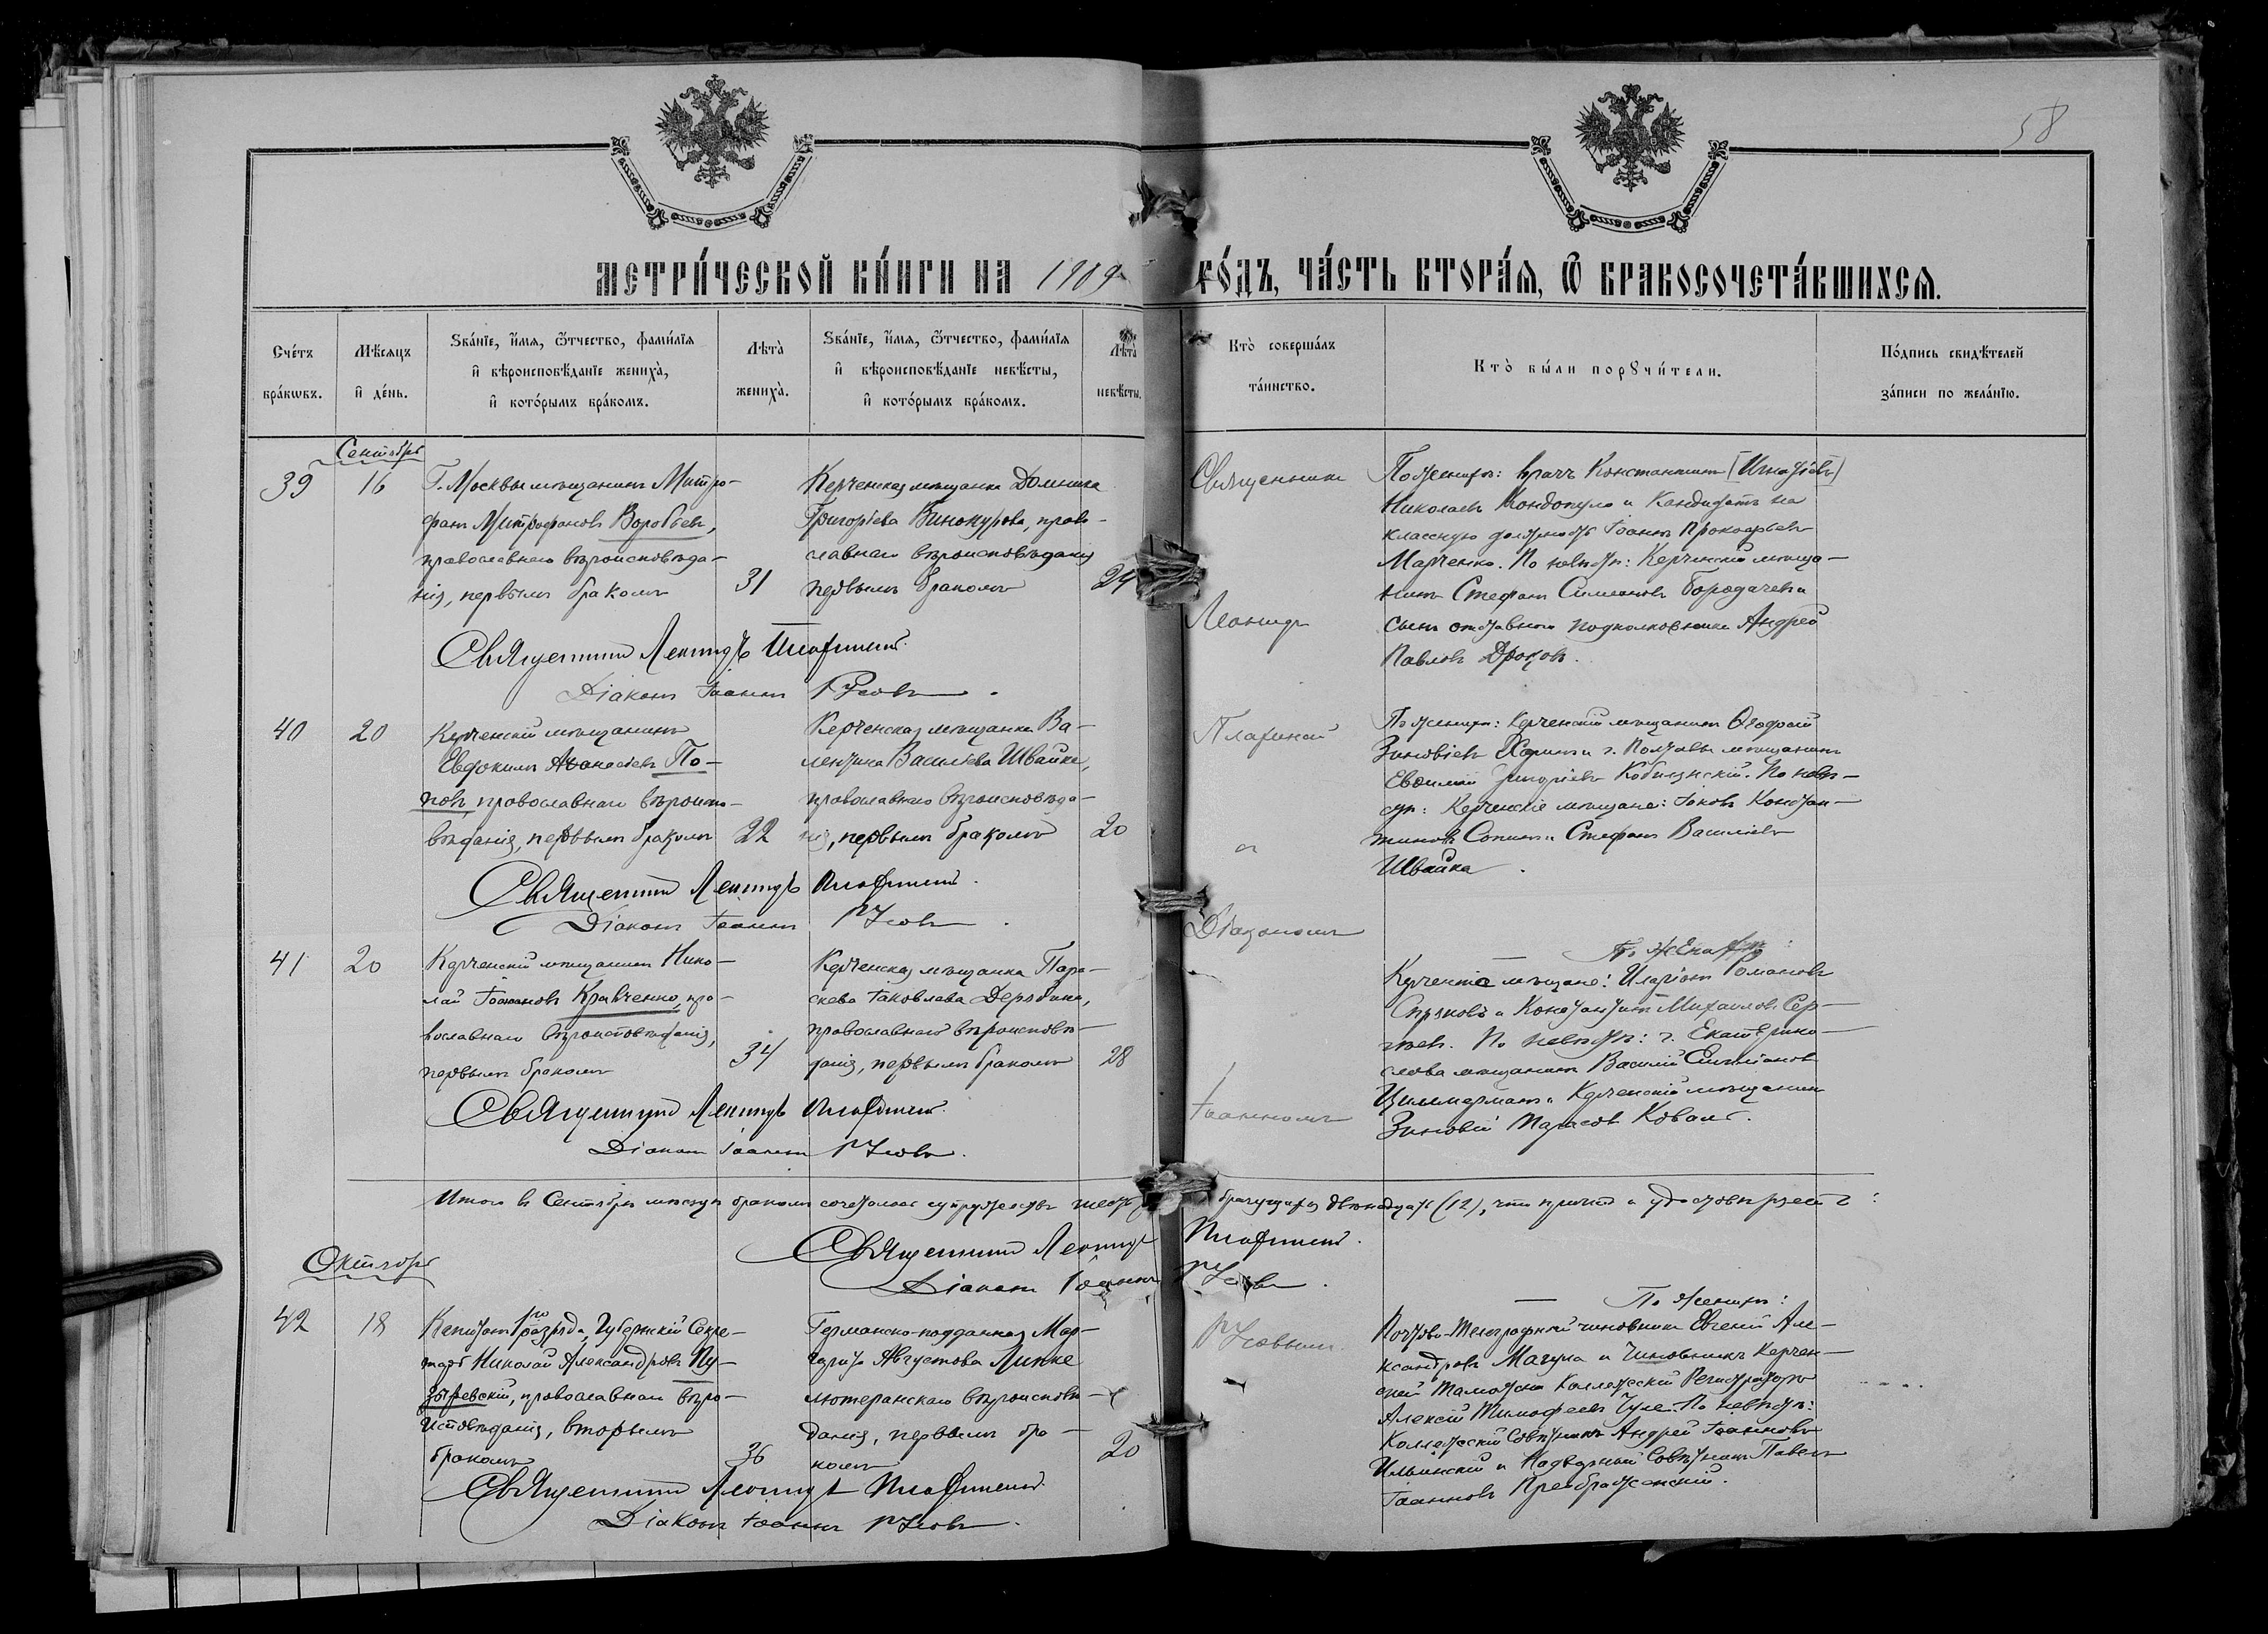 58
МЕТРИ́ЧЕСКОЙ КНИ́ГИ НА 1909 ГО́ДЪ, ЧА́СТЬ ВТОРА́Я, Ѿ БРАКОСОЧЕТА́ВШИХСЯ.
Сче́тъ бра́ковъ.
Мѣ́сяцъ и де́нь.
Зва́нїе, и́мя, ѻ́тчество, фами́лїя
и вѣроисповѣ́данїе жениха̀,
и кото́рымъ бра́комъ.
Лѣта̀ жениха̀.
Зва́нїе, и́мя, ѻ́тчество, фами́лїя
и вѣроисповѣ́данїе невѣ́сты,
и кото́рымъ бра́комъ.
Лѣта̀ невѣ́сты.
Кто̀ соверша́лъ та́инство.
Кто̀ бы́ли порꙋчи́тели.
По́дпись свидѣ́телей
за́писи по жела́нїю.
Сентябрь
39
16
Г. Москвы мѣщанинъ Митро-
фанъ Митрофановъ Воробьевъ,
православнаго вѣроисповѣда-
нія, первымъ бракомъ
31
Керченская мѣщанка Домника
Григорьева Винокурова, право-
славнаго вѣроисповѣданія
первымъ бракомъ
24
Священникъ
Леонидъ
По женихѣ: врачъ Константинъ (Игнатіевъ)
Николаевъ Кондопуло и Кандидатъ на
классную должность Іоаннъ Прокофьевъ
Марченко. По невѣстѣ: Керченскій мѣща-
нинъ Стефанъ Симеоновъ Бородачевъ и
сынъ отставного подполковника Андрей
Павловъ
Священникъ Леонидъ
Діаконъ Іоаннъ Русовъ.
40
20
Керченскій мѣщанинъ
Евдокимъ Аѳанасіевъ По-
повъ, православнаго вѣроиспо-
вѣданія, первымъ бракомъ
22
Керченская мѣщанка Ва-
лентина Васильева Швайка,
православнаго вѣроисповѣда-
нія, первымъ бракомъ
20
и
По женихѣ: Керченскій мѣщанинъ
Зиновіевъ и г. Полтавы мѣщанинъ
Евѳимій Григоріевъ Кобилянскій. По невѣ-
стѣ: Керченскіе мѣщане: Іаковъ Констан-
тиновъ и Стефанъ Василіевъ
Швайка.
Священникъ Леонидъ
Діаконъ Іоаннъ Русовъ.
Діакономъ
41
20
Керченскій мѣщанинъ Нико-
лай Іоанновъ Кравченко, пра-
вославнаго вѣроисповѣданія,
первымъ бракомъ
34
Керченская мѣщанка Пара-
скева Іаковлева Дерябина,
православнаго вѣроисповѣ-
данія, первымъ бракомъ
28
Іоанномъ
По женихѣ:
Керченскіе мѣщане: Иларіонъ Романовъ
и Константинъ Михаиловъ Сер-
гѣевъ. По невѣстѣ: г. Екатерино-
слава мѣщанинъ Василій Емиліановъ
Циммерманъ и Керченскій мѣщанинъ
Зиновій Тарасовъ Коваль.
Священникъ Леонидъ
Діаконъ Іоаннъ Русовъ.
Итого въ Сентябрѣ мѣсяцѣ бракомъ сочеталось супружествъ шесть, брачущихся двѣнадцать (12), что причтъ и удостовѣряетъ:
Священникъ Леонидъ
Діаконъ Іоаннъ Русовъ.
Октябрь
42
18
Капитанъ 1го разряда, Губернскій Секре-
тарь Николай Александровъ Пу-
зыревскій, православнаго вѣро-
исповѣданія, вторымъ
бракомъ
36
Германско-подданная Мар-
гарита Августова Липке
лютеранскаго вѣроисповѣ-
данія, первымъ бра-
комъ
20
Русовымъ.
По женихѣ:
Почтово-Телеграфный чиновникъ Евгеній Але-
ксандровъ Магула и Чиновникъ Керчен-
ской Таможни Коллежскій Регистраторъ
Алексій Тимофеевъ По невѣстѣ:
Коллежскій Совѣтникъ Андрей Іоанновъ
Ильинскій и Надворный Совѣтникъ Павелъ
Іоанновъ Преображенскій.
Священникъ Леонидъ
Діаконъ Іоаннъ Русовъ.